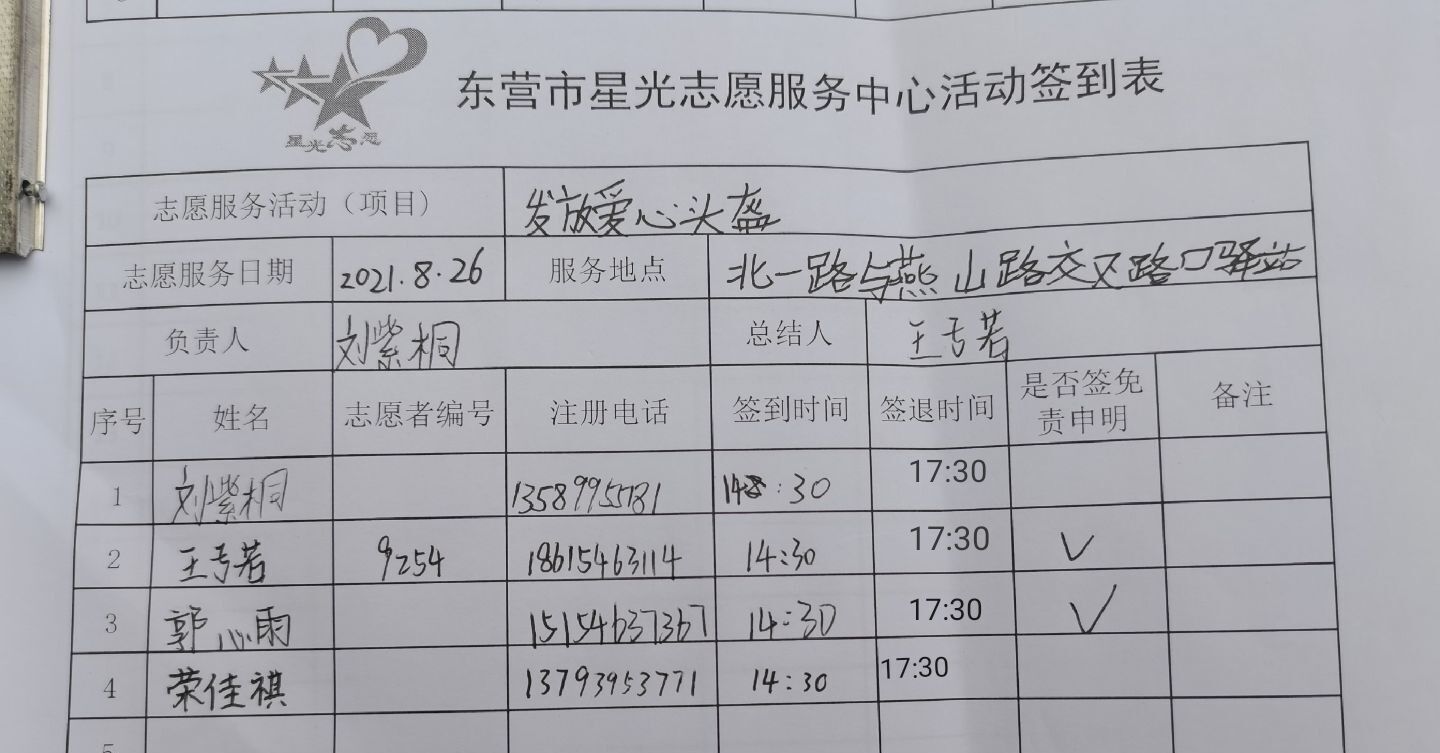 星光志愿
东营市星光志愿服务中心活动签到表
志愿服务活动（项目） 发放爱心头盔
志愿服务日期 2021.8.26 服务地点 北一路与燕山路交叉路口驿站
负责人 刘紫桐 总结人 王亏若
序号 姓名 志愿者编号 注册电话 签到时间 签退时间 是否签免责申明 备注
1 刘紫桐 :30 17:30
2 王亏若 9254 18615463114 14:30 17:30 ✓
3 郭心雨 15154637367 14:30 17:30 ✓
4 荣佳祺 13793953771 14:30 17:30
5